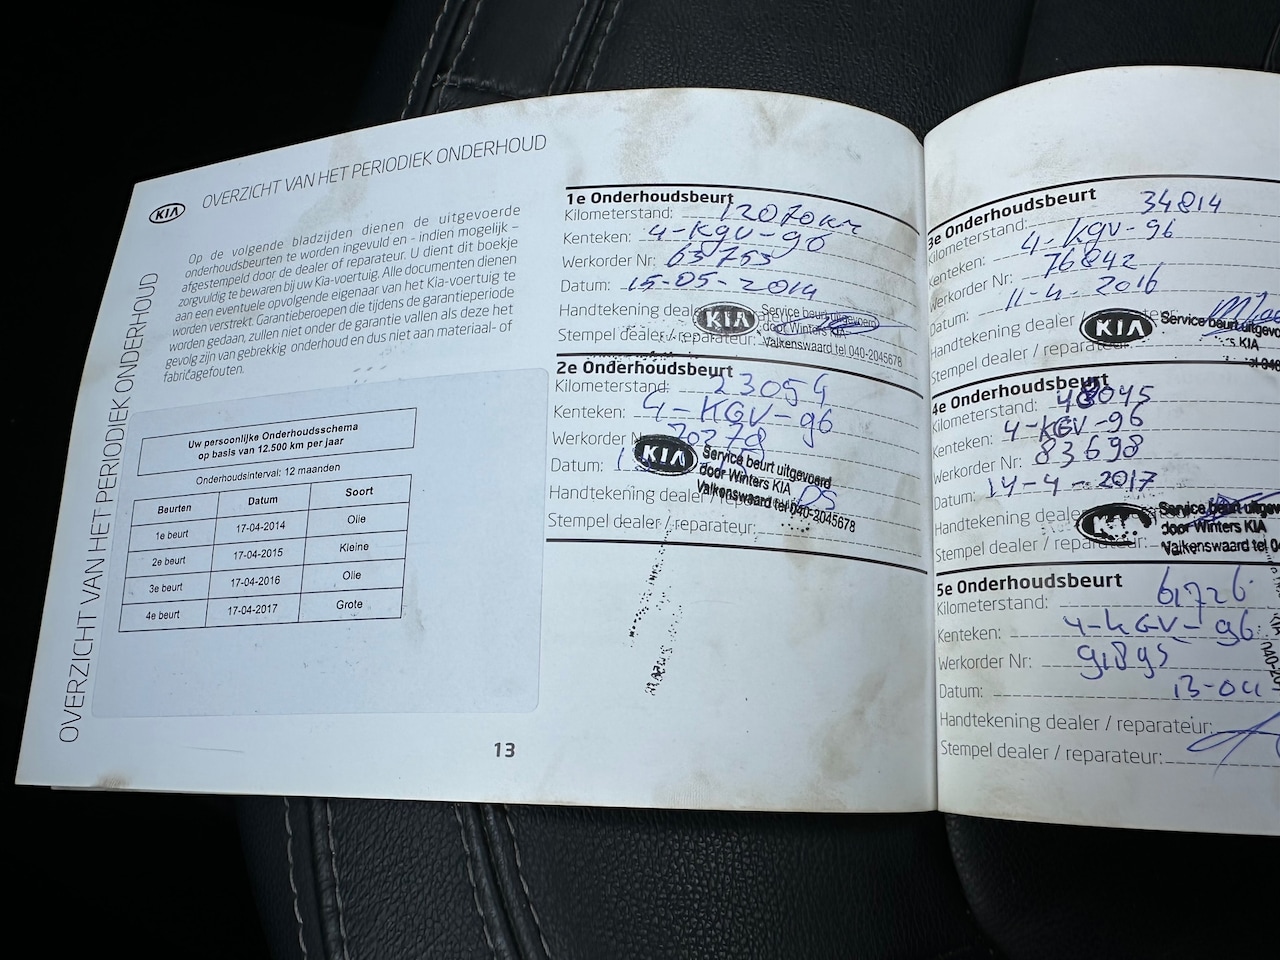 OVERZICHT VAN HET PERIODIEK ONDERHOUD
KIA
OVERZICHT VAN HET PERIODIEK ONDERHOUD
Op de volgende bladzijden dienen de uitgevoerde
onderhoudsbeurten te worden ingevuld en - indien mogelijk -
afgestempeld door de dealer of reparateur. U dient dit boekje
zorgvuldig te bewaren bij uw Kia-voertuig. Alle documenten dienen
aan een eventuele opvolgende eigenaar van het Kia-voertuig te
worden verstrekt. Garantieberoepen die tijdens de garantieperiode
worden gedaan, zullen niet onder de garantie vallen als deze het
gevolg zijn van gebrekkig onderhoud en dus niet aan materiaal- of
fabricagefouten.
Uw persoonlijke Onderhoudsschema
op basis van 12.500 km per jaar
Onderhoudsinterval: 12 maanden
Beurten Datum Soort
1e beurt 17-04-2014 Olie
2e beurt 17-04-2015 Kleine
3e beurt 17-04-2016 Olie
4e beurt 17-04-2017 Grote
13
1e Onderhoudsbeurt
Kilometerstand: 12070km
Kenteken: 4-kgv-96
Werkorder Nr: 63753
Datum: 15-05-2014
Handtekening dealer
Stempel dealer / reparateur:
KIA
Service beurt uitgevoerd
door Winters KIA
Valkenswaard tel 040-2045678
2e Onderhoudsbeurt
Kilometerstand: 23054
Kenteken: 4-KGV-96
Werkorder 70278
Datum:
Handtekening dealer / reparateur:
Stempel dealer / reparateur:
KIA
Service beurt uitgevoerd
door Winters KIA
Valkenswaard tel 040-2045678
3e Onderhoudsbeurt
Kilometerstand: 34814
Kenteken: 4-kgv-96
Werkorder Nr: 76842
Datum: 11-4-2016
Handtekening dealer /
Stempel dealer / reparateur:
KIA
Service beurt uitgevo
s KIA
4e Onderhoudsbeurt
Kilometerstand: 48045
Kenteken: 4-KGV-96
Werkorder Nr: 83698
Datum: 14-4-2017
Handtekening deale
Stempel dealer / reparateur:
KIA
Service beurt uitgevo
door Winters KIA
Valkenswaard tel 0
5e Onderhoudsbeurt
Kilometerstand: 61726
Kenteken: 4-KGV-96
Werkorder Nr: 91895
Datum: 13-04
Handtekening dealer / reparateur:
Stempel dealer / reparateur: